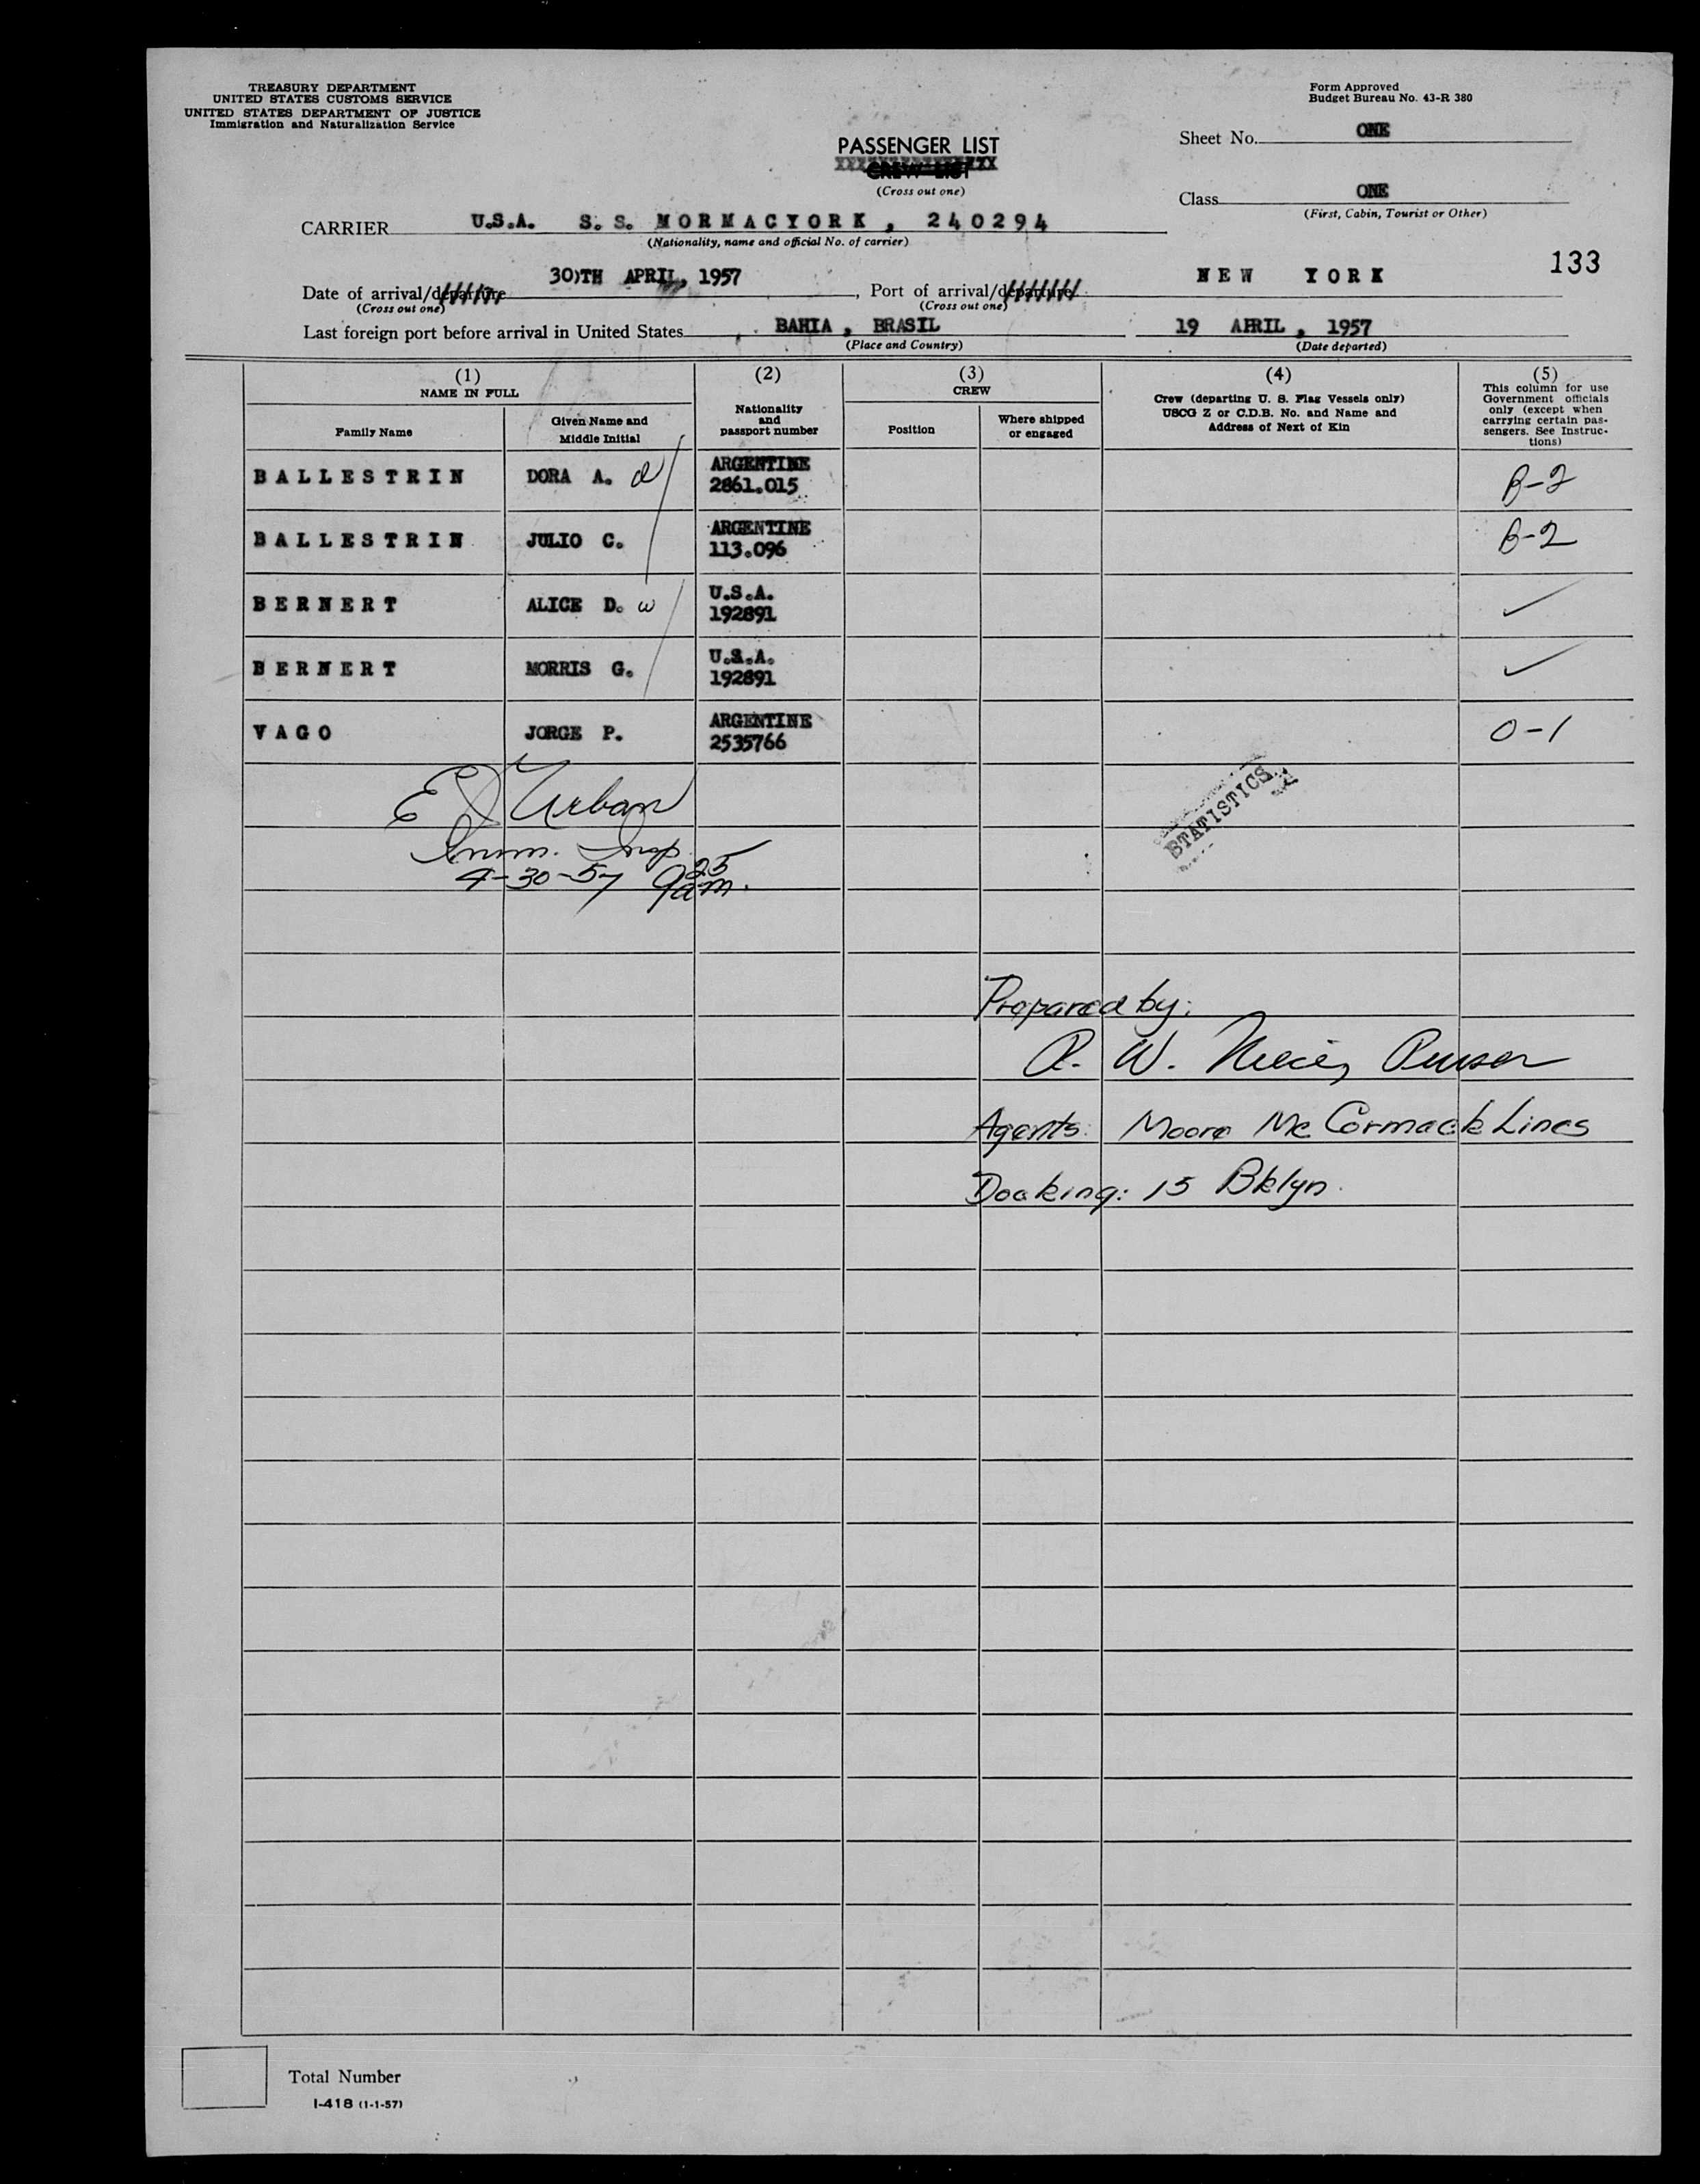 TREASURY DEPARTMENT
UNITED STATES CUSTOMS SERVICE
UNITED STATES DEPARTMENT OF JUSTICE
Immigration and Naturalization Service
Form Approved
Budget Bureau No. 43-R 380
PASSENGER LIST
CREW LIST
(Cross out one)
Sheet No. ONE
Class ONE
(First, Cabin, Tourist or Other)
CARRIER U.S.A. S. S. MORMACYORK , 240294
(Nationality, name and official No. of carrier)
133
Date of arrival/departure 30)TH APRIL, 1957, Port of arrival/departure NEW YORK
(Cross out one) (Cross out one)
Last foreign port before arrival in United States BAHIA , BRASIL 19 APRIL , 1957
(Place and Country) (Date departed)
(1) (2) (3) (4) (5)
NAME IN FULL
Family Name
Given Name and
Middle Initial
Nationality
and
passport number
CREW
Position
Where shipped
or engaged
Crew (departing U. S. Flag Vessels only)
USCG Z or C.D.B. No. and Name and
Address of Next of Kin
This column for use
Government officials
only (except when
carrying certain pas-
sengers. See Instruc-
tions)
BALLESTRIN DORA A. d ARGENTINE 2861.015 B-2
BALLESTRIN JULIO C. ARGENTINE 113.096 B-2
BERNERT ALICE D. w U.S.A. 192891 ✓
BERNERT MORRIS G. U.S.A. 192891 ✓
VAGO JORGE P. ARGENTINE 2535766 O-1
E J Urban
Imm. Insp.
4-30-57 9 25 am.
STATISTICS
Prepared by:
R. W. Purser
Agents: Moore McCormack Lines
Docking: 15 Bklyn.
Total Number
I-418 (1-1-57)